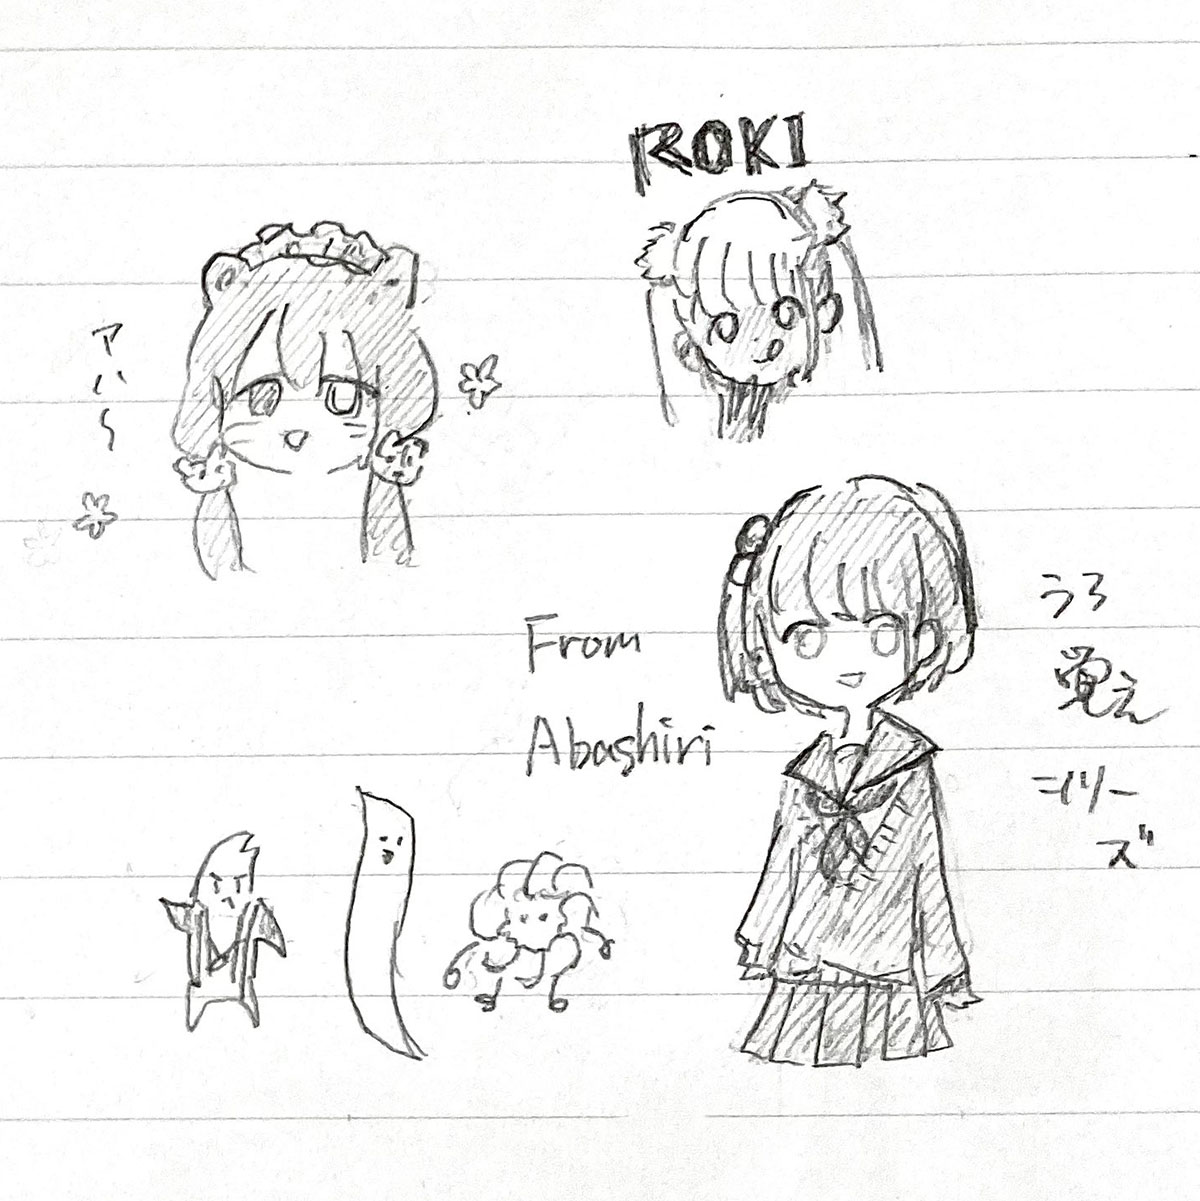 ROKI
アハ〜
From
Abashiri
うろ
覚え
シリー
ズ